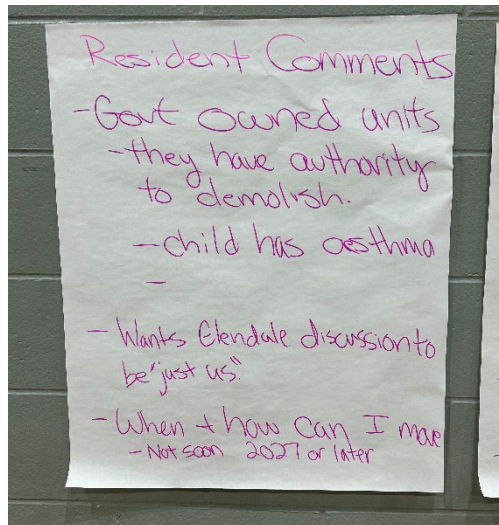 Resident Comments
-Govt owned units
-they have authority
to demolish.
-child has asthma
-
- Wants Glendale discussion to
be "just us."
- When + how can I move
- Not soon 2027 or later